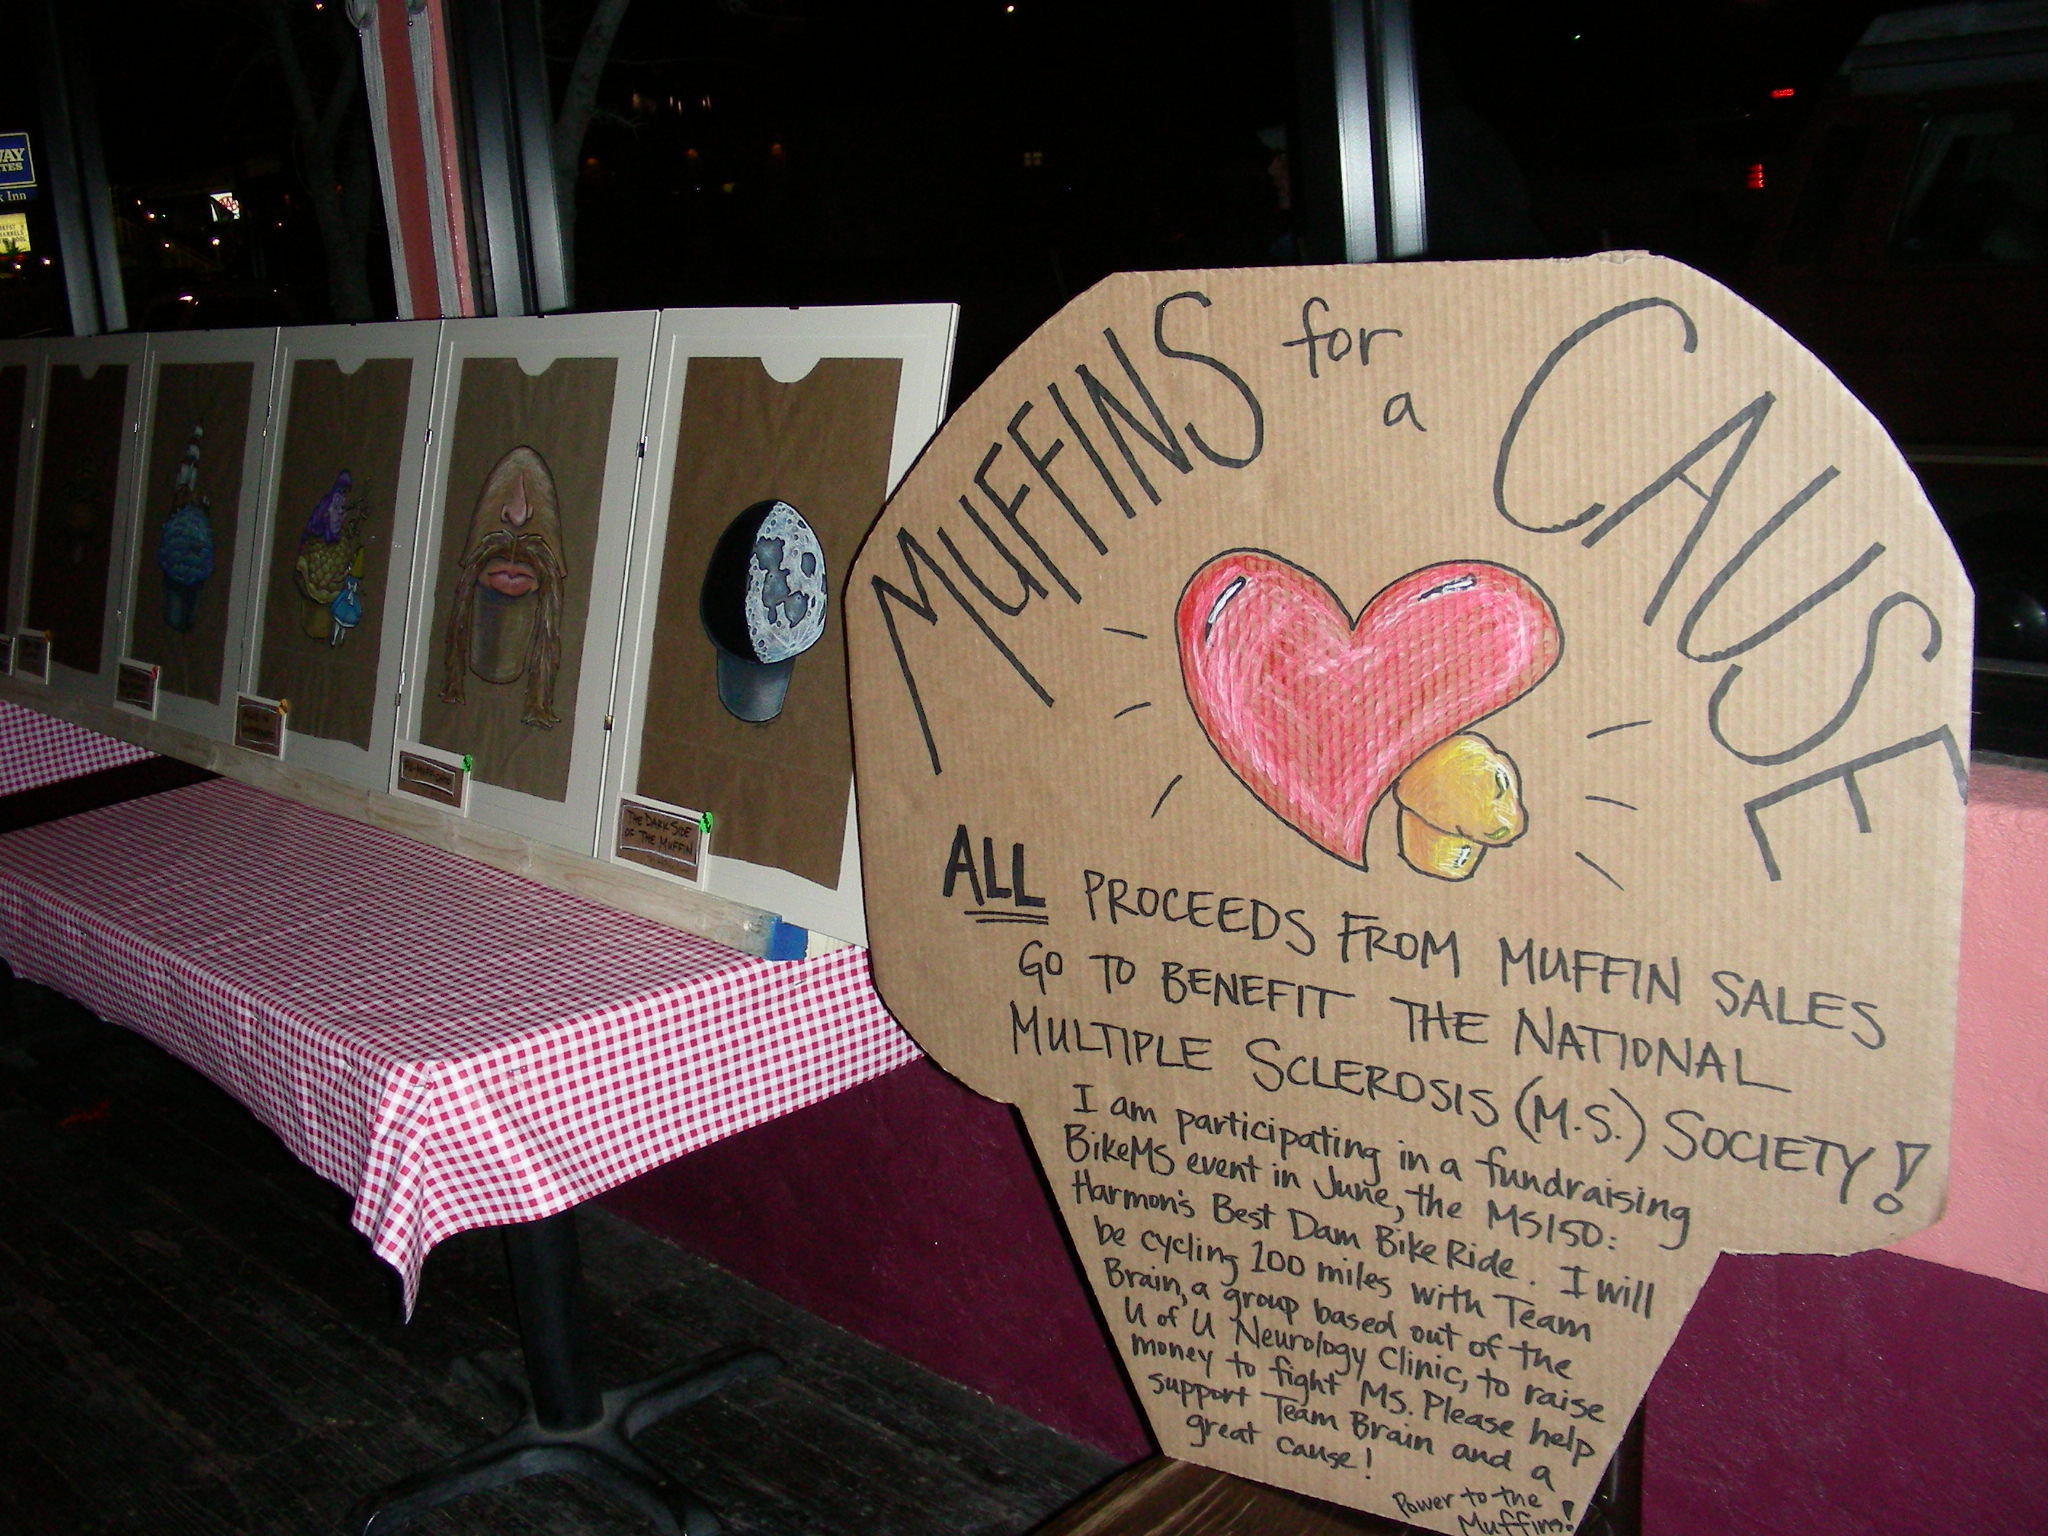 WAY
TES
k Inn
MUFFINS for a CAUSE
ALL PROCEEDS FROM MUFFIN SALES
GO TO BENEFIT THE NATIONAL
MULTIPLE SCLEROSIS (M.S.) SOCIETY!
I am participating in a fundraising
BikeMS event in June, the MS150:
Harmon's Best Dam Bike Ride. I will
be cycling 100 miles with Team
Brain, a group based out of the
U of U Neurology Clinic, to raise
money to fight MS. Please help
support Team Brain and a
great cause!
Power to the
Muffins!
THE DARK SIDE
OF THE MUFFIN